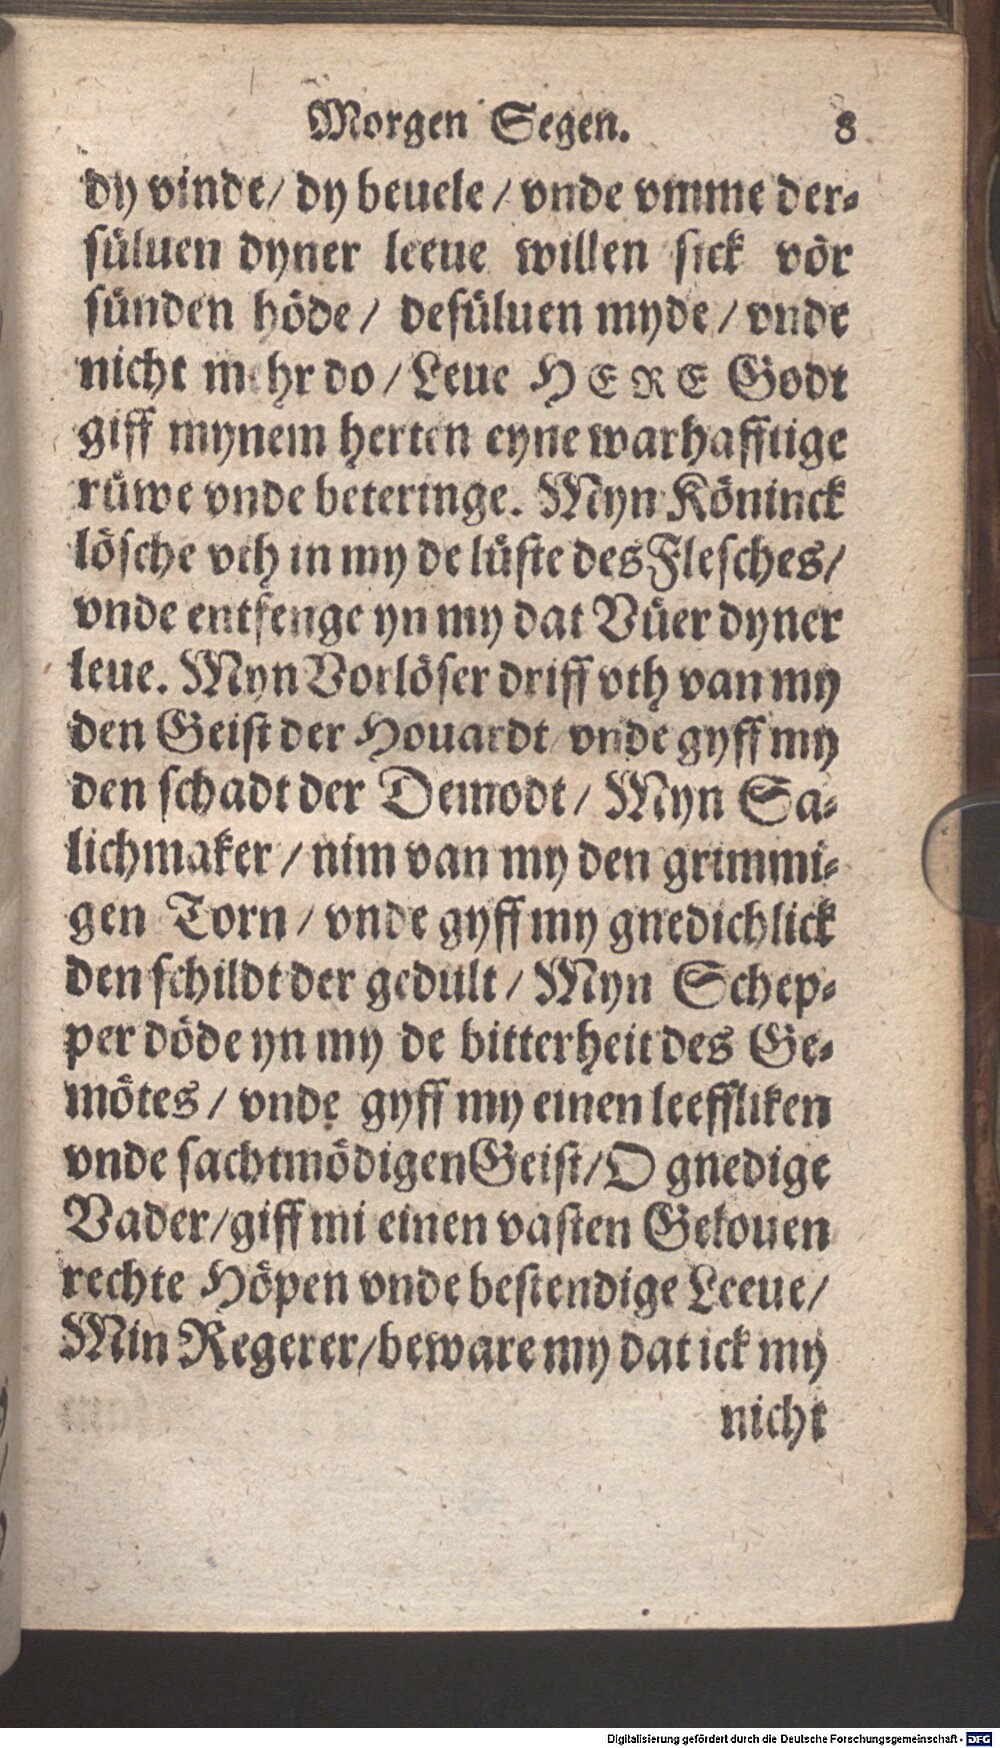 Morgen Segen. 8
dy vinde/ dy beuele/ vnde vmme der-
süluen dyner leeue willen sick vör
sünden höde/ desüluen myde/ vnde
nicht mehr do/ Leue HERE Godt
giff mynem herten eyne warhafftige
rüwe vnde beteringe. Myn Köninck
lösche vth in my de lüste des Flesches/
vnde entfenge yn my dat Vüer dyner
leue. Myn Vorlöser driff vth van my
den Geist der Houardt vnde gyff my
den schadt der Demodt/ Myn Sa-
lichmaker/ nim van my den grimmi-
gen Torn/ vnde gyff my gnedichlick
den schildt der gedult/ Myn Schep-
per döde yn my de bitterheit des Ge-
mötes/ vnde gyff my einen leeffliken
vnde sachtmödigen Geist/ O gnedige
Vader/ giff mi einen vasten Gelouen
rechte Höpen vnde bestendige Leeue/
Min Regerer/ beware my dat ick my
nicht
Digitalisierung gefördert durch die Deutsche Forschungsgemeinschaft - DFG